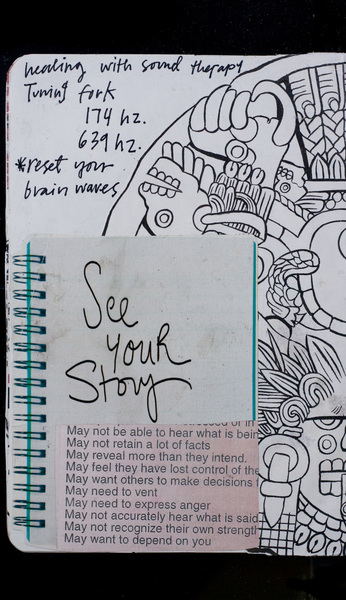 healing with sound therapy
Tuning fork
174 hz.
639 hz.
*reset your
brain waves
See
your
Story
or in
May not be able to hear what is
May not retain a lot of facts
May reveal more than they intend.
May feel they have lost control of the
May want others to make decisions
May need to vent
May need to express anger
May not accurately hear what is said
May not recognize their own
May want to depend on you